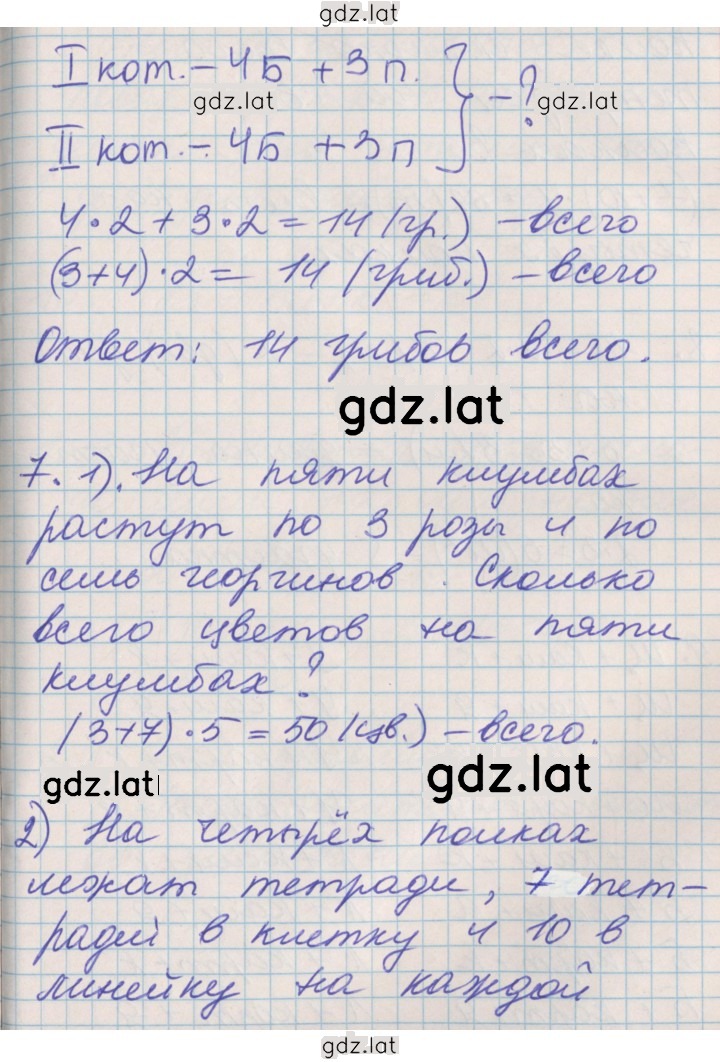 gdz.lat
I кот. – 4Б + 3 п.
gdz.lat
} – ? gdz.lat
II кот – 4Б + 3 п
4 · 2 + 3 · 2 = 14 (гр.) – всего
(3+4) · 2 = 14 (гриб.) – всего
Ответ: 14 грибов всего.
gdz.lat
7. 1). На пяти клумбах
растут по 3 розы и по
семь георгинов. Сколько
всего цветов на пяти
клумбах?
(3+7) · 5 = 50 (цв.) – всего.
gdz.lat
gdz.lat
2) На четырёх полках
лежат тетради, 7 тет–
радей в клетку и 10 в
линейку на каждой
gdz.lat